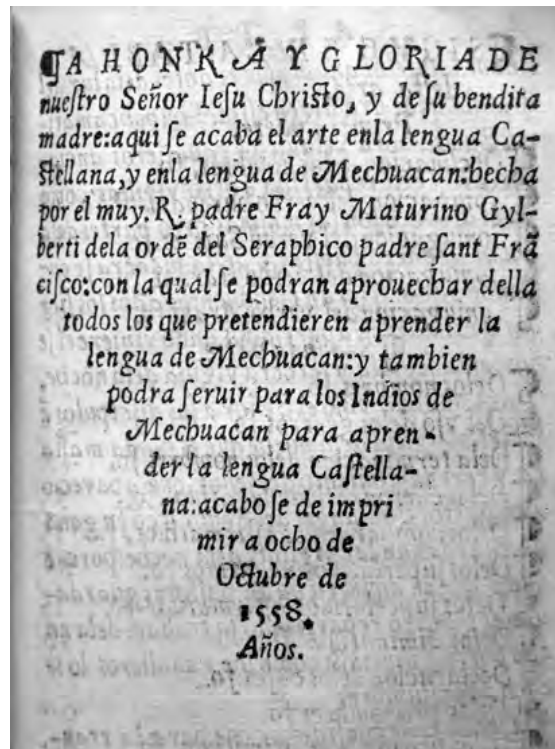 ¶A HONRA Y GLORIA DE
nueſtro Señor Ieſu Chriſto, y de ſu bendita
madre:aqui ſe acaba el arte enla lengua Ca-
ſtellana,y enla lengua de Mechuacan:hecha
por el muy. R. padre Fray Maturino Gyl-
berti dela ordẽ del Seraphico padre ſant Frã
ciſco:con la qual ſe podran aprouechar della
todos los que pretendieren aprender la
lengua de Mechuacan:y tambien
podra ſeruir para los Indios de
Mechuacan para apren-
der la lengua Caſtella-
na:acabo ſe de impri
mir a ocho de
Octubre de
1558.
Años.